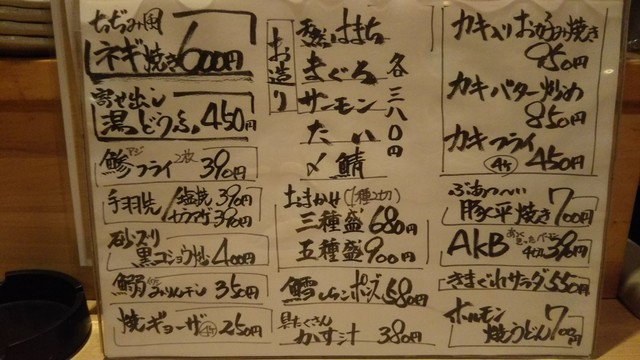 ちぢみ風
ネギ焼き600円
寄せ出し
湯どうふ 450円
鯵フライ 2枚 390円
手羽先 塩焼 390円
390円
砂ズリ
黒コショウ炒 400円
みりん干し 350円
焼ギョーザ 250円
お造り
天然はまち
まぐろ
サーモン
たい
〆鯖
各三八〇円
おまかせ(1種2切)
三種盛680円
五種盛900円
鱈しらこポン酢580円
具だくさん
かす汁 380円
カキ入りお好み焼き
950円
カキバター炒め
850円
カキフライ
4ケ 450円
ぶあつーい
豚平焼き700円
AKB 390円
きまぐれサラダ550円
ホルモン
焼うどん700円